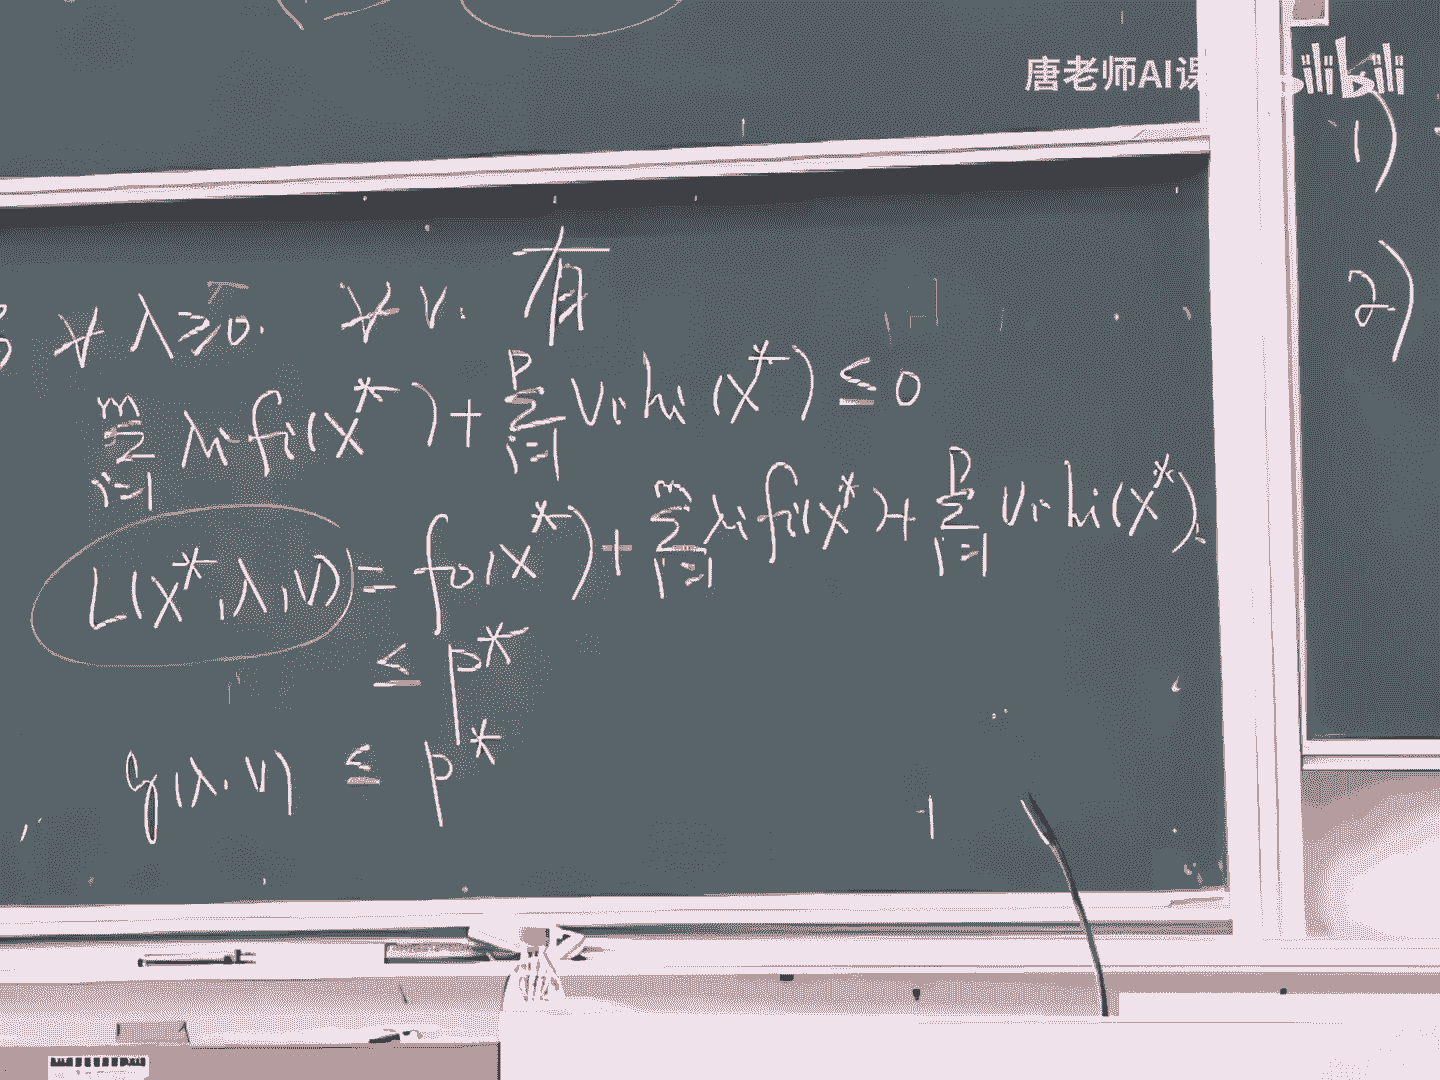 唐老师AI课
bilibili
1)
2)
∀ λ≥0. ∀ v. 有
∑_{i=1}^{m} λi fi(x*) + ∑_{i=1}^{p} vi hi(x*) ≤ 0
L(x*, λ, v) = f0(x*) + ∑_{i=1}^{m} λi fi(x*) + ∑_{i=1}^{p} vi hi(x*)
≤ p*
g(λ, v) ≤ p*